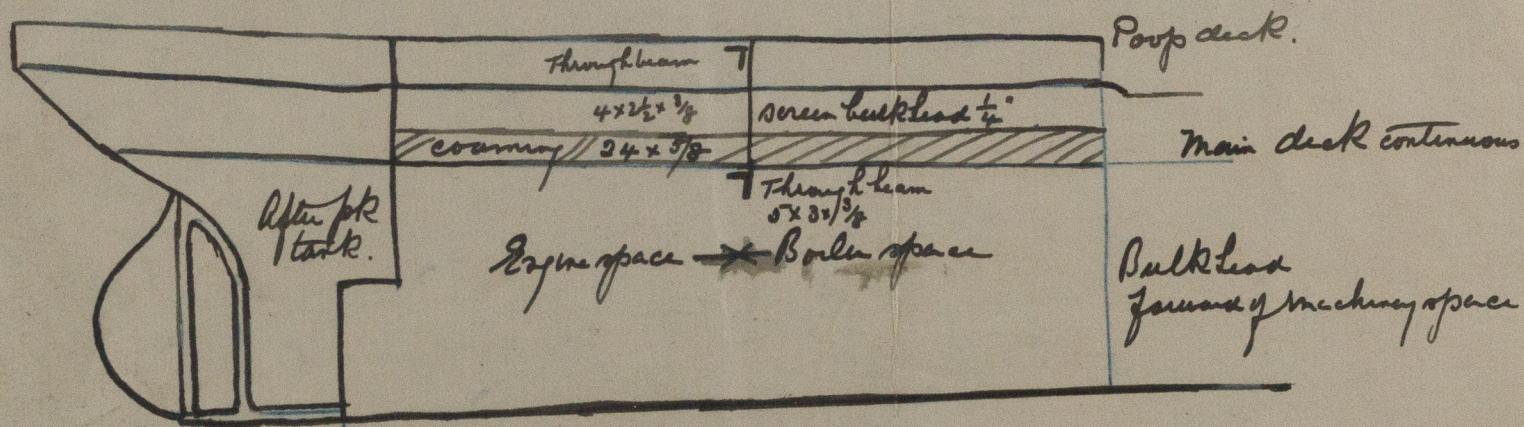 Poop deck.
Through beam
4 x 2½ x 3/8
screen bulkhead ¼"
coaming 24 x 3/8
Main deck continuous
Through beam
5 x 3 x 3/8
After pk
tank.
Engine space
Boiler space
Bulkhead
forward of machinery space